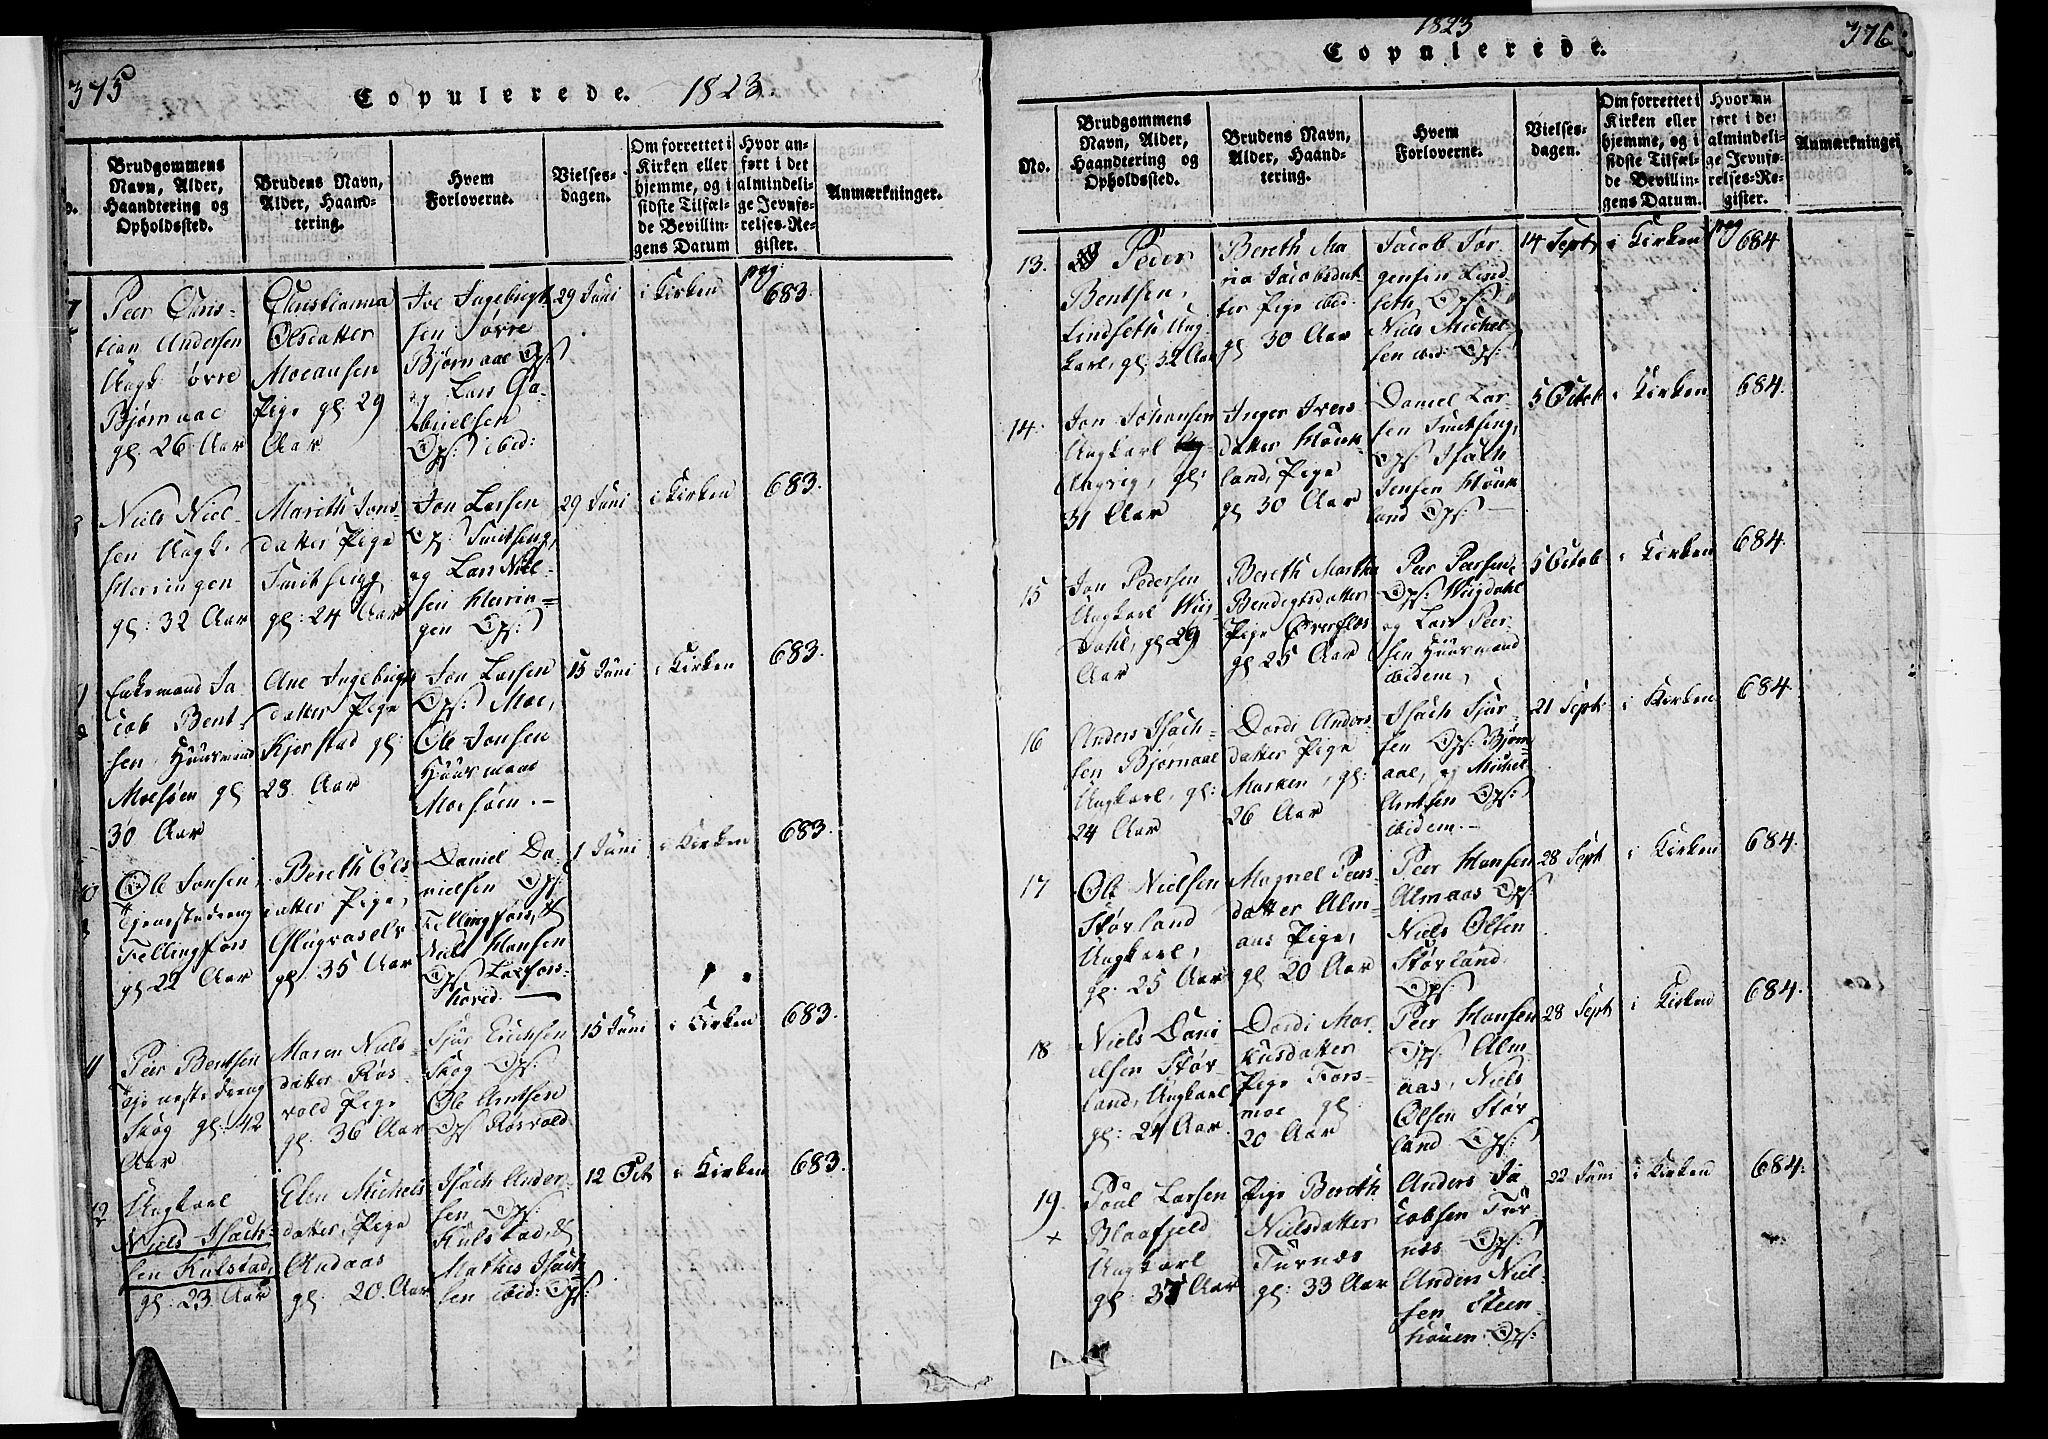 375
Copulerede. 1823
Brudgommens Navn, Alder, Haandtering og Opholdssted.
Brudens Navn, Alder, Haandtering.
Hvem Forloverne.
Vielsesdagen.
Om forrettet i Kirken eller hjemme, og i sidste Tilfælde Bevillingens Datum
Hvor anført i det almindelige Jevnførelses-Register.
Anmærkninger.
7
Peer Chris-
tian Andersen
Ungk. øvre
Bjørnaae
gl: 26 Aar
Christianna
Olsdatter
Moeausen
Pige gl: 29
Aar
Ive Ingebrigt-
sen øvre
Bjørnaae Ops:
og Lars Ga-
brielsen
Ops: ibid:
29 Juni
i Kirken
pag: 683.
8
Niels Niel-
sen Ungk.
Herringen
gl: 32 Aar
Marith Jons-
datter Pige
Smitseng
gl: 24 Aar
Jon Larsen
Ops: Smitseng,
og Lars Niel-
sen Herrin-
gen Ops:
29 Juni
i Kirken
683.
9
Enkemand Ja
cob Bent-
sen, Huusmand
Moesøen gl
30 Aar
Ane Ingebrigts
datter Pige
Kjerstad gl:
28 Aar
Jon Larsen
Ops: Moe,
Ole Jonsen
Huusmand
Moesøen. –
15 Juni
i Kirken
683.
10
Ole Jonsen,
Tjenestedreng
Fellingfors
gl 22 Aar
Bereth Ols-
datter Pige,
gl: 35 Aar
Daniel Da-
nielsen Ops:
Fellingfors, &
Niels Hansen
Ops: Laxfors-
hoved. —
1 Juni
i Kirken
683.
11
Peer Bentsen
Tjenestedreng
Skog gl: 42
Aar
Maren Niels
datter Røs-
vold Pige
gl: 36 Aar
Sjur Erichsen
Skog Ops:
Ole Arntsen
Ops Røsvold
15 Juni
i Kirken
683.
12
Ungkarl
Niels Isach-
sen Kulstad,
gl: 23 Aar
Elen Michels
datter, Pige
Andaas
gl: 20. Aar
Isach Ander-
sen Ops:
Kulstad, &
Mathis Isach
sen ibid: Ops:
12 Oct
i Kirken
683.
376
1823
Copulerede.
No.
Brudgommens Navn, Alder, Haandtering og Opholdssted.
Brudens Navn, Alder, Haandtering.
Hvem Forloverne.
Vielsesdagen.
Om forrettet i Kirken eller hjemme, og i sidste Tilfælde Bevillingens Datum.
Hvor anført i det almindelige Jevnførelses-Register.
Anmærkninger
13.
Peder
Bentsen,
Lindseth Ung
karl, gl: 32 Aar
Bereth Ma
ria Jacobsdat
ter Pige ibid:
gl 30 Aar
Jacob Jør
gensen Lind
seth, Ops:
Niels Michel-
sen ibid: Ops:
14 Sept
i Kirken
pag 684
14.
Jon Johansen
Ungkarl
gl:
31 Aar
Inger Ivers
datter Houk-
land, Pige
gl 30 Aar
Daniel Lar-
sen Smitseng,
Ops: Isach
Jensen Houk
land Ops: —
5 Octob
i Kirken
684.
15
Jon Pedersen
Ungkarl Wiig
dahl, gl 29
Aar
Bereth Martha
Bendigtsdatter
Pige
gl 25 Aar
Peer Peersen,
Ops: Wiigdahl
og Lars Peer-
sen Huusmand
ibidem,
5 Octob
i Kirken
684.
16
Anders Isach-
sen Bjørnaae
Ungkarl, gl:
24 Aar
Dordi Anders
datter Pige
Marken, gl:
26 Aar
Isach Sjur-
sen Ops: Bjørn-
aae, og Michel
Arntsen Ops:
ibidem. –
21 Sept:
i Kirken
684.
17
Ole Nielsen
Størland
Ungkarl,
gl: 25 Aar
Magnel Peers-
datter Alm-
aas Pige,
gl 20 Aar
Peer Hansen
Almaas Ops:
Niels Olsen
Størland
Ops:
28 Sept
i Kirken
684.
18
Niels Dani
elsen Stør-
land, Ungkarl
gl: 24 Aar
Dordi Mar
kusdatter
Pige Fors-
moe gl
20 Aar
Peer Hansen
Ops: Alm
aas, Niels
Olsen Stør
land Ops:
28 Sept
i Kirken
684.
19.
×
Poul Larsen
Blaafjeld
Ungkarl
gl: 37 Aar
Pige Bereth
Nielsdatter
Turnæs
gl: 33 Aar
Anders Ja
cobsen Tur
næs Ops:
Anders Niel-
sen Steen-
houen Ops:
22 Juni
i Kirken
684.